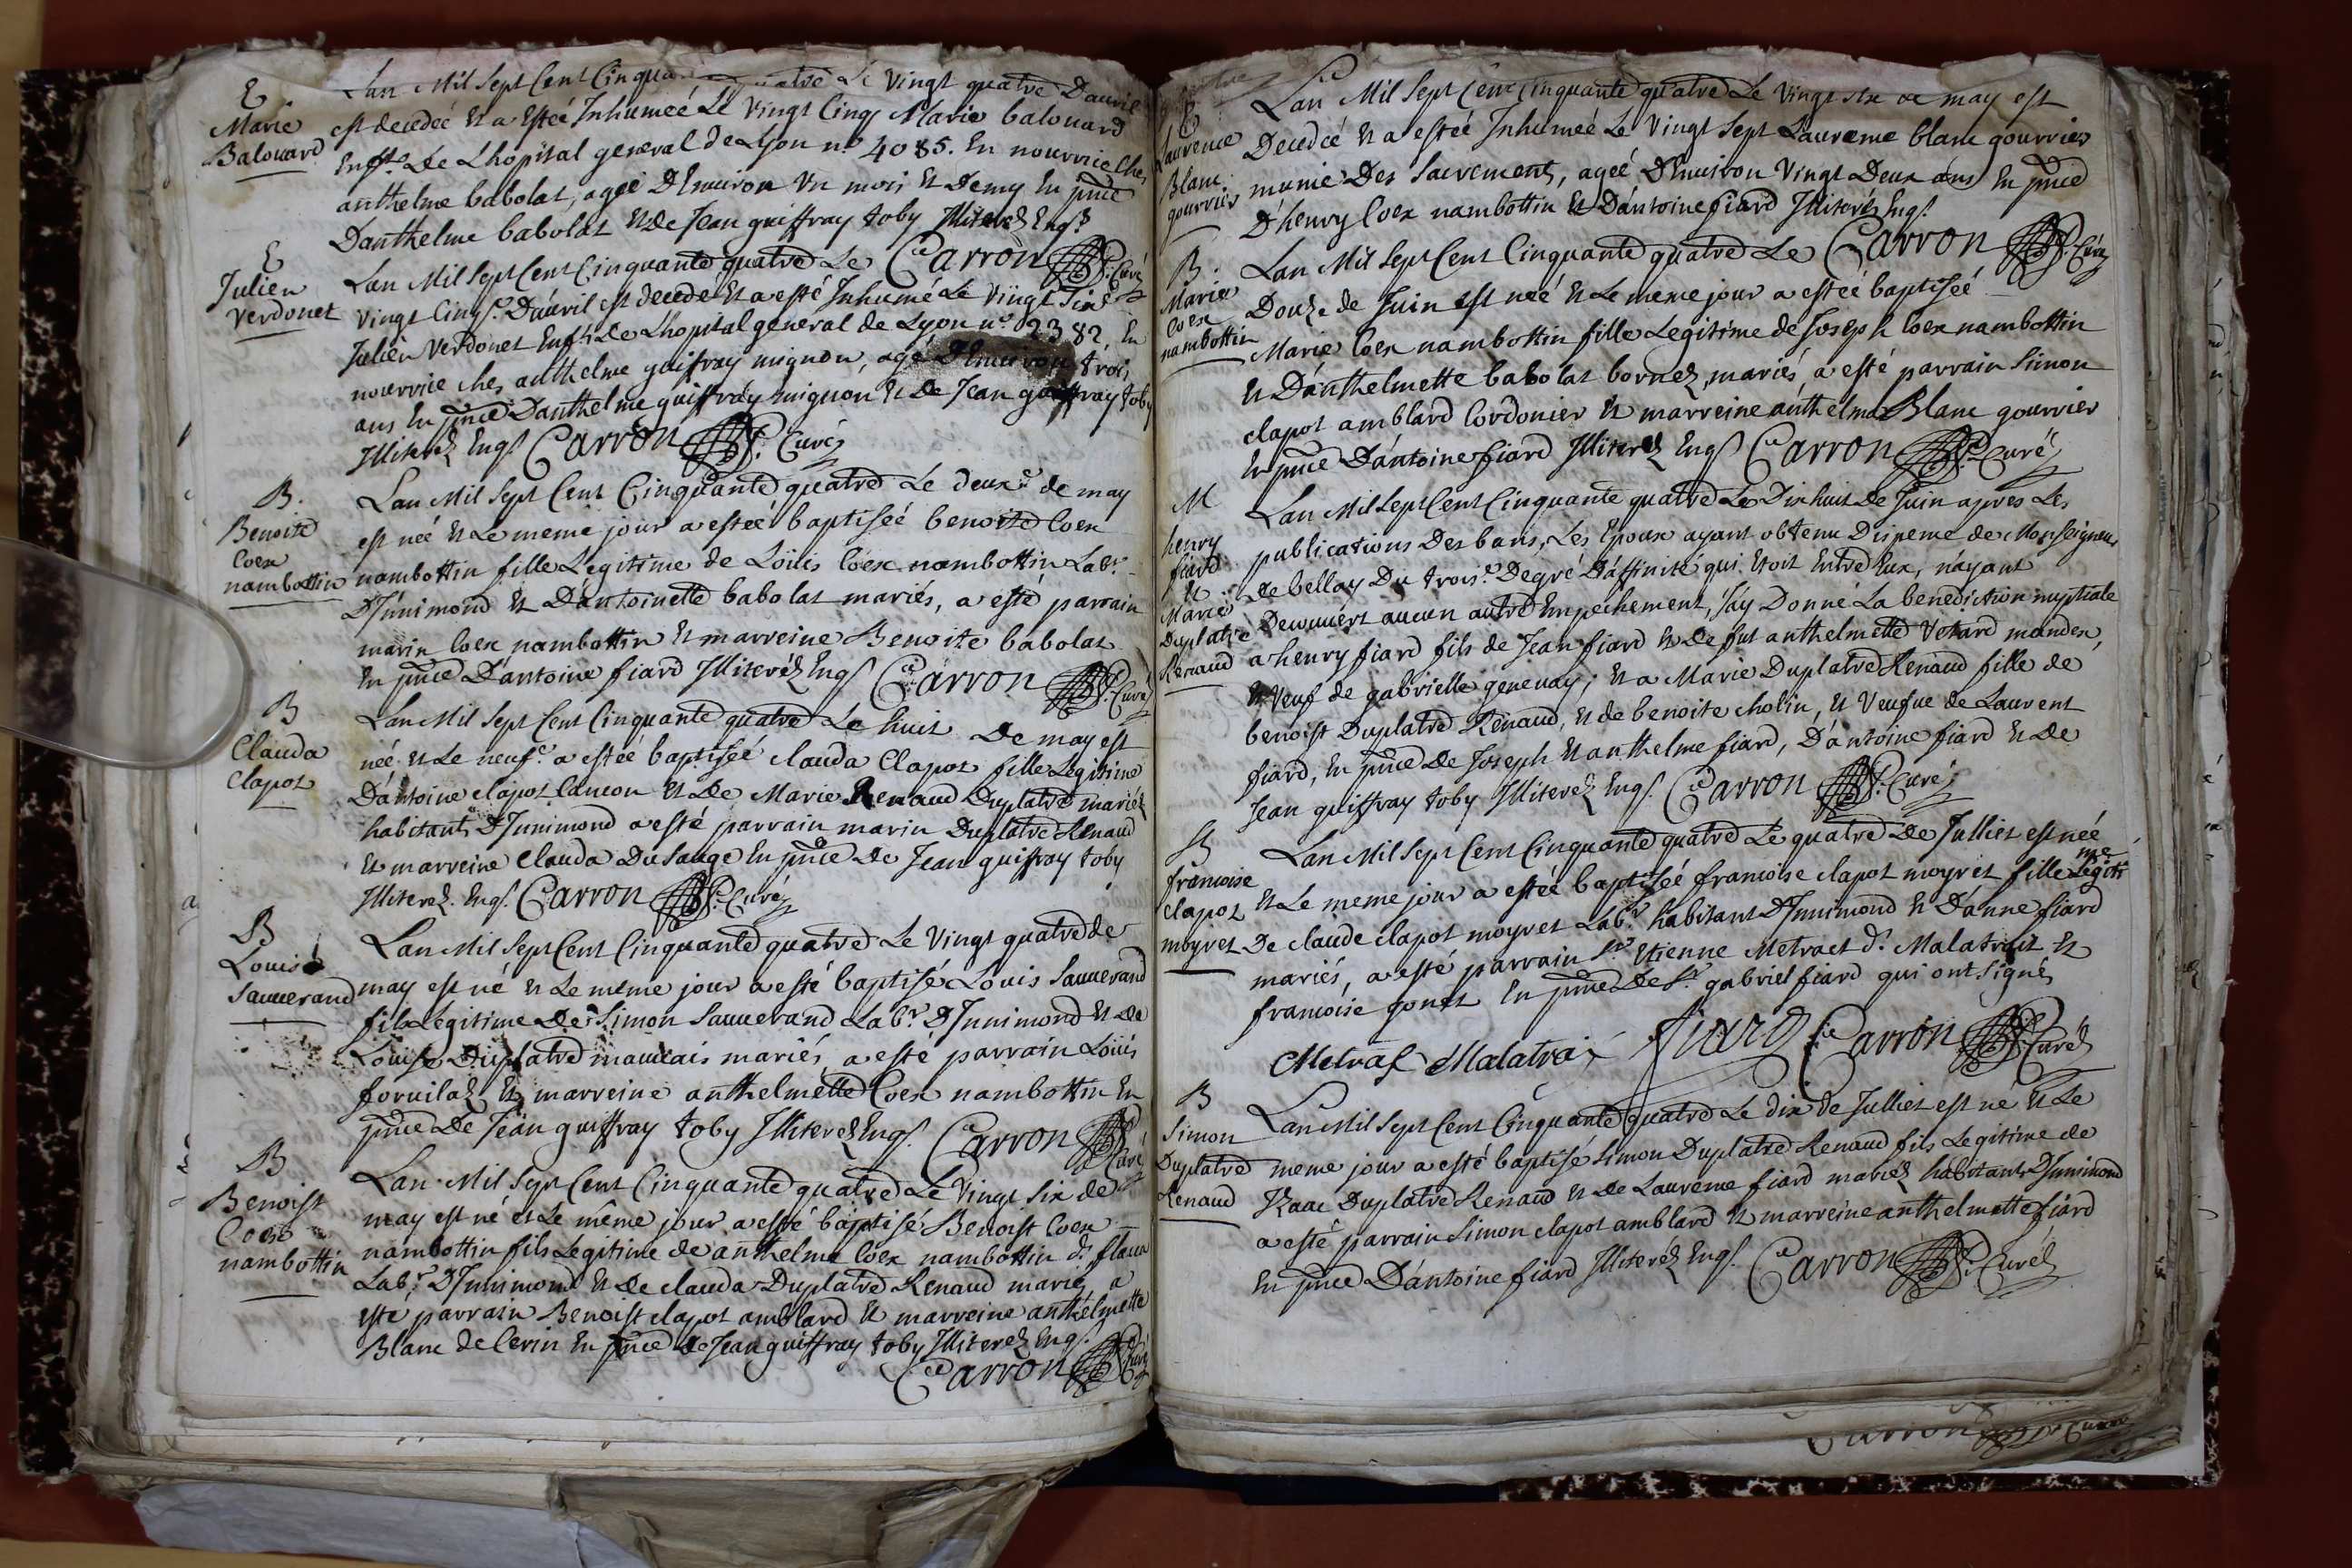 E
Marie
Balouard
Lan Mil Sept Cent Cinquante quatre Le Vingt quatre Dauril
est decedeé Et a Estée Inhumeé Le Vingt Cinq Marie balouard
Enft. De L'hopital general de Lyon n.º 4085. En nourrice Ches
anthelme babolat, ageé D'Enuiron Vn mois Et Demy En pnce
Danthelme babolat Et De Jean guiffray toby Illiterez Enqs
Carron Curé
E
Julien
Verdonet
Lan Mil Sept Cent Cinquante quatre Le
Vingt Cinqe. D'auril est decedé Et a esté Inhumé Le Vingt Sixe
Julien Verdonet Enft De L'hopital general de Lyon n.º 2382, En
nourrice ches anthelme guiffray mignon, agé D'Enuiron trois
ans En pnce D'anthelme guiffray mignon Et De Jean guiffray toby
Illiterez Enqs Carron Curé
B.
Benoite
Coex
nambottin
Lan Mil Sept Cent Cinquante quatre Le deuxe de may
est neé Et Le meme jour a esteé baptiseé benoite Coex
nambottin fille Legitime de Loüis Coex nambottin Labr.
D'Innimond Et D'antoinette babolat mariés, a esté parrain
marin Coex nambottin Et marreine Benoite babolat
En pnce D'antoine fiard Illiteréz Enqs Carron Curé
B
Clauda
Clapot
Lan Mil Sept Cent Cinquante quatre Le huit De may est
neé Et Le neufe a esteé baptiseé clauda Clapot fille Legitime
D'antoine clapot Cancon Et De Marie Renaud Duplatre mariéz
habitants D'Innimond a esté parrain marin Duplatre Renaud
Et marreine Clauda Dusauge En pnce De Jean guiffray toby
Illiterez. Enqs. Carron Curé
B
Louis
Sauuerand
Lan Mil Sept Cent Cinquante quatre Le Vingt quatre de
may est né Et Le même jour a esté baptisé Louis Sauuerand
fils Legitime De Simon Sauuerand Labr. D'Innimond Et De
Louise Duplatre mauuais mariés, a esté parrain Loüis
foruilaz Et marreine anthelmette Coex nambottin En
pnce De Jean guiffray toby Illiterez Enqs. Carron Curé
B
Benoist
Coex
nambottin
Lan Mil Sept Cent Cinquante quatre Le Vingt Six de
may est né et Le même jour a esté baptisé Benoist Coex
nambottin fils Legitime de anthelme Coex nambottin dt.
Labr. D'Innimond Et De clauda Duplatre Renaud mariez, a
esté parrain Benoist clapot amblard Et marreine anthelmette
Blanc de Cerin En pnce de Jean guiffray toby Illiterez Enqs.
Carron Curé
E
Laurence
Blanc
gourrier
Lan Mil Sept Cent Cinquante quatre Le Vingt Six de may est
Decedeé Et a esteé Inhumeé Le Vingt Sept Laurence blanc gourrier
munie Des Sacrements, ageé D'Enuiron Vingt Deux ans En pnce
D'henry Coex nambottin Et D'antoine fiard Illiterés Enqs.
Carron Curé
B.
Marie
Coex
nambottin
Lan Mil Sept Cent Cinquante quatre Le
Douze de Juin est neé Et Le meme jour a esteé baptiseé
Marie Coex nambottin fille Legitime de Joseph Coex nambottin
Et D'anthelmette babolat bornez, mariés, a esté parrain Simon
clapot amblard Cordonier Et marreine anthelma Blanc gourrier
En pnce D'antoine fiard Illiterez Enqs Carron Curé
M
henry
fiard
Et
Marie
Duplatre
Renaud
Lan Mil Sept Cent Cinquante quatre Le Dix huit de Juin apres Les
publications Des bans, Les Epoux ayant obtenu Dispense de Monseigneur
de bellay Du troise. Degré D'affinité qui Etoit Entre Eux, n'ayant
Decouuert aucun autre Empechement, J'ay Donné La bénediction nuptiale
a henry fiard fils de Jean fiard Et de fut anthelmette Vetard mandex,
Et Veuf de gabrielle genevay; Et a Marie Duplatre Renaud fille de
benoist Duplatre Renaud, Et de benoite cholin, Et Veufue de Laurent
fiard, En pnce De Joseph Et anthelme fiard, D'antoine fiard Et De
Jean guiffray toby Illiterez Enqs. Carron Curé
B
francoise
clapot
moyret
Lan Mil Sept Cent Cinquante quatre Le quatre De Julliet est neé
Et Le meme jour a esteé baptiseé francoise clapot moyret fille Legitime
De claude clapot moyret Labr. habitant D'Innimond Et D'anne fiard
mariés, a esté parrain Sr. Etienne Metraet dt. Malatrait Et
francoise gonet En pnce De Sr. gabriel fiard qui ont Signé
Metras Malatrai fiard Carron Curé
B
Simon
Duplatre
Renaud
Lan Mil Sept Cent Cinquante quatre Le dix de Julliet est né Et Le
meme jour a esté baptisé Simon Duplatre Renaud fils Legitime de
Izaac Duplatre Renaud Et De Laurence fiard mariéz habitants D'Innimond
a esté parrain Simon clapot amblard Et marreine anthelmette fiard
En pnce D'antoine fiard Illiteréz Enqs. Carron Curé
Carron Curé